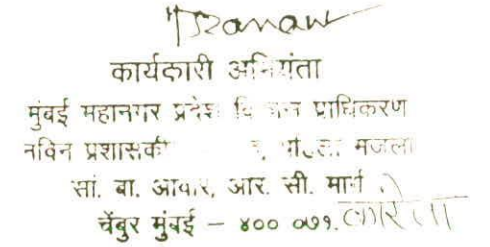 कार्यकारी अभियंता
मुंबई महानगर प्रदेश विकास प्राधिकरण
नविन प्रशासकी पहिला मजला
सां. बा. आवार, आर. सी. मार्ग,
चेंबुर मुंबई – ४०० ०७१. करिता